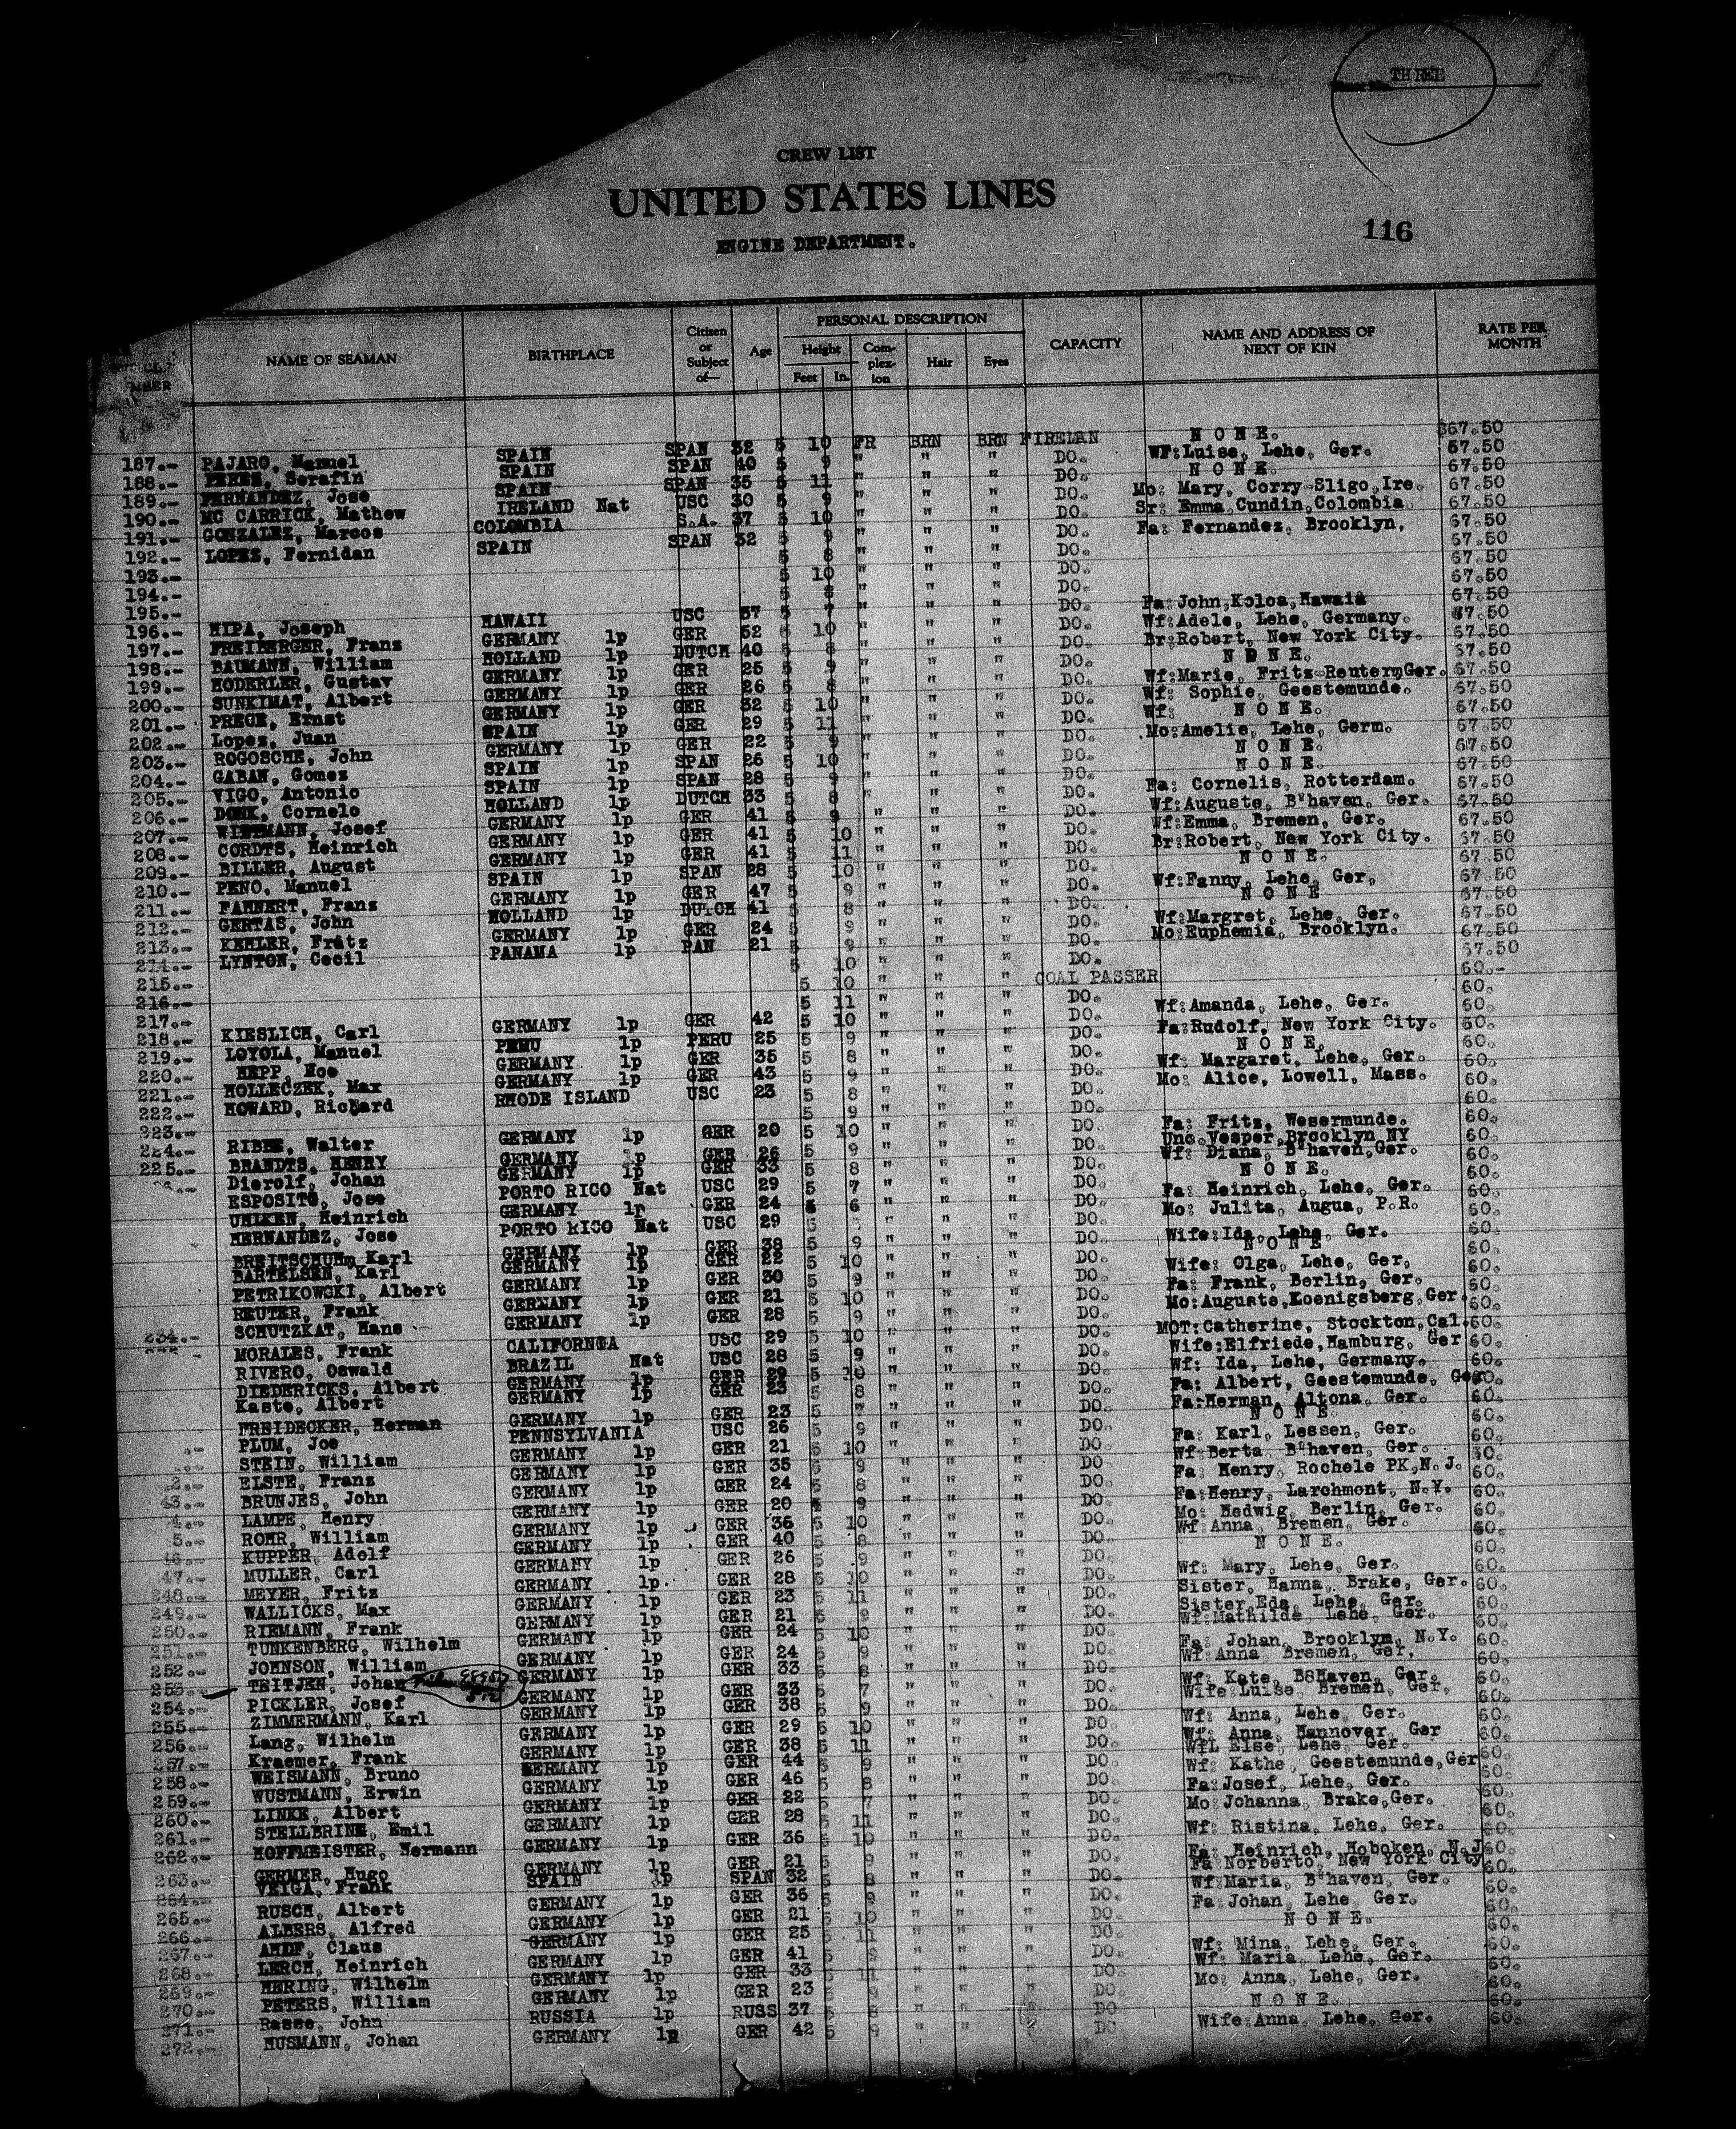 THREE
CREW LIST
UNITED STATES LINES
ENGINE DEPARTMENT.
116
NAME OF SEAMAN BIRTHPLACE Citizen or Subject of— Age PERSONAL DESCRIPTION Height Feet In. Complexion Hair Eyes CAPACITY NAME AND ADDRESS OF NEXT OF KIN RATE PER MONTH
187.- PAJARO, Manuel SPAIN SPAN 32 5 10 FR BRN BRN FIREMAN N O N E. $67.50
188.- PEREZ, Serafin SPAIN SPAN 40 5 9 " " " DO. WF:Luise, Lehe, Ger. 67.50
189.- FERNANDEZ, Jose SPAIN SPAN 35 5 11 " " " DO. N O N E. 67.50
190.- MC CARRICK, Mathew IRELAND Nat USC 30 5 9 " " " DO. Mo: Mary, Corry-Sligo, Ire. 67.50
191.- GONZALEZ, Marcos COLOMBIA S.A. 37 5 10 " " " DO. Sr: Emma, Cundin, Colombia 67.50
192.- LOPEZ, Fernidan SPAIN SPAN 32 5 9 " " " DO. Fa: Fernandez, Brooklyn, 67.50
193.- 5 8 " " " DO. 67.50
194.- 5 10 " " " DO. 67.50
195.- 5 8 " " " DO. 67.50
196.- HIPA, Joseph HAWAII USC 37 5 7 " " " DO. Fa: John, Koloa, Hawaii 67.50
197.- FREIBERGER, Franz GERMANY 1p GER 52 5 10 " " " DO. Wf:Adele, Lehe, Germany. 67.50
198.- BAUMANN, William HOLLAND 1p DUTCH 40 5 8 " " " DO. Br:Robert, New York City. 67.50
199.- HODERLER, Gustav GERMANY 1p GER 25 5 9 " " " DO. N O N E. 67.50
200.- SUNKIMAT, Albert GERMANY 1p GER 26 5 8 " " " DO. Wf:Marie, Fritz-Reuterm Ger. 67.50
201.- PREGE, Ernst GERMANY 1p GER 32 5 10 " " " DO. Wf: Sophie, Geestemunde. 67.50
202.- Lopez, Juan SPAIN 1p GER 29 5 11 " " " DO. Wf: N O N E. 67.50
203.- ROGOSCHE, John GERMANY 1p GER 22 5 9 " " " DO. Mo:Amelie, Lehe, Germ. 67.50
204.- GABAN, Gomez SPAIN 1p SPAN 26 5 10 " " " DO. N O N E. 67.50
205.- VIGO, Antonio SPAIN 1p SPAN 28 5 9 " " " DO. N O N E. 67.50
206.- DONK, Cornelo HOLLAND 1p DUTCH 33 5 8 " " " DO. Fa: Cornelis, Rotterdam. 67.50
207.- Josef GERMANY 1p GER 41 5 9 " " " DO. Wf:Auguste, B'haven, Ger. 67.50
208.- CORDTS, Heinrich GERMANY 1p GER 41 5 10 " " " DO. Wf:Emma, Bremen, Ger. 67.50
209.- BILLER, August GERMANY 1p GER 41 5 11 " " " DO. Br:Robert, New York City. 67.50
210.- PENO, Manuel SPAIN 1p SPAN 28 5 10 " " " DO. N O N E. 67.50
211.- FAHNERT, Franz GERMANY 1p GER 47 5 9 " " " DO. Wf:Fanny, Lehe, Ger. 67.50
212.- GERTAS, John HOLLAND 1p DUTCH 41 5 8 " " " DO. N O N E 67.50
213.- KEHLER, Fritz GERMANY 1p GER 24 5 9 " " " DO. Wf:Margret, Lehe, Ger. 67.50
214.- LYNTON, Cecil PANAMA 1p PAN 21 5 9 " " " DO. Mo:Euphemia, Brooklyn. 67.50
215.- 5 10 " " " DO. 67.50
216.- 5 10 " " " COAL PASSER 60.-
217.- 5 11 " " " DO. 60.
218.- KIESLICH, Carl GERMANY 1p GER 42 5 10 " " " DO. Wf:Amanda, Lehe, Ger. 60.
219.- LOYOLA, Manuel PERU 1p PERU 25 5 9 " " " DO. Fa:Rudolf, New York City. 60.
220.- HEPP, Noe GERMANY 1p GER 35 5 8 " " " DO. N O N E. 60.
221.- HOLLECZEK, Max GERMANY 1p GER 43 5 9 " " " DO. Wf: Margaret, Lehe, Ger. 60.
222.- HOWARD, Richard RHODE ISLAND USC 23 5 8 " " " DO. Mo: Alice, Lowell, Mass. 60.
223.- 5 9 " " " DO. 60.
224.- RIBBE, Walter GERMANY 1p GER 20 5 10 " " " DO. Fa: Fritz, Wesermunde. 60.
225.- BRANDTS, HENRY GERMANY 1p GER 26 5 9 " " " DO. Unc.Vesper, Brooklyn NY 60.
Dierolf, Johan GERMANY 1p GER 33 5 8 " " " DO. Wf: Diana, B'haven, Ger. 60.
ESPOSITO, Jose PORTO RICO Nat USC 29 5 7 " " " DO. N O N E. 60.
UHLKEN, Heinrich GERMANY 1p GER 24 5 6 " " " DO. Fa: Heinrich, Lehe, Ger. 60.
HERNANDEZ, Jose PORTO RICO Nat USC 29 5 " " " DO. Mo: Julita, Augua, P.R. 60.
BREITSCHUHm Karl GERMANY 1p GER 38 5 9 " " " DO. Wife:Ida, Lehe, Ger. 60.
BARTELSEN, Karl GERMANY 1p GER 22 5 10 " " " DO. N O N E 60.
PETRIKOWSKI, Albert GERMANY 1p GER 30 5 9 " " " DO. Wife: Olga, Lehe, Ger. 60.
REUTER, Frank GERMANY 1p GER 21 5 10 " " " DO. Fa: Frank, Berlin, Ger. 60.
SCHUTZKAT, Hans GERMANY 1p GER 28 5 9 " " " DO. Mo:Auguste, Koenigsberg, Ger. 60.
234.- MORALES, Frank CALIFORNIA USC 29 5 10 " " " DO. MOT:Catherine, Stockton, Cal. 60.
RIVERO, Oswald BRAZIL Nat USC 28 5 9 " " " DO. Wife:Elfriede, Hamburg, Ger 60.
DIEDERICKS, Albert GERMANY 1p GER 29 5 10 " " " DO. Wf: Ida, Lehe, Germany. 60.
Kaste, Albert GERMANY 1p GER 23 5 8 " " " DO. Fa: Albert, Geestemunde, Ger. 60.
FREIDECKER, Herman GERMANY 1p GER 23 5 7 " " " DO. Fa:Herman, Altona, Ger. 60.
PLUM, Joe PENNSYLVANIA USC 26 5 9 " " " DO. N O N E. 60.
STEIN, William GERMANY 1p GER 21 5 10 " " " DO. Fa: Karl, Lessen, Ger. 60.
ELSTE, Franz GERMANY 1p GER 35 5 9 " " " DO. Wf:Berta B'haven, Ger. 60.
43.- BRUNJES, John GERMANY 1p GER 24 5 8 " " " DO. Fa: Henry, Rochele PK, N.J. 60.
4.- LAMPE, Henry GERMANY 1p GER 20 5 9 " " " DO. Fa:Henry, Larchmont, N.Y. 60.
5.- ROHR, William GERMANY 1p GER 36 5 10 " " " DO. Mo: Hedwig, Berlin, Ger. 60.
46.- KUPPER, Adolf GERMANY 1p GER 40 5 8 " " " DO. Wf:Anna, Bremen, Ger. 60.
47.- MULLER, Carl GERMANY 1p GER 26 5 9 " " " DO. N O N E. 60.
248.- MEYER, Fritz GERMANY 1p. GER 28 5 10 " " " DO. Wf: Mary, Lehe, Ger. 60.
249.- WALLICKS, Max GERMANY 1p GER 23 5 11 " " " DO. Sister, Hanna, Brake, Ger. 60.
250.- RIEMANN, Frank GERMANY 1p GER 21 5 9 " " " DO. Sister, Eda, Lehe, Ger. 60.
251.- TUNKENBERG, Wilhelm GERMANY 1p GER 24 5 10 " " " DO. Wf:Mathilde Lehe, Ger. 60.
252.- JOHNSON, William GERMANY 1p GER 24 5 9 " " " DO. Fa: Johan, Brooklyn, N.Y. 60.
253.- TEITJEN, Johan GERMANY 1p GER 33 5 8 " " " DO. Wf:Anna Bremen, Ger. 60.
254.- PICKLER, Josef GERMANY 1p GER 33 5 7 " " " DO. Wf: Kate, B8Haven, Ger. 60.
255.- ZIMMERMANN, Karl GERMANY 1p GER 38 5 9 " " " DO. Wife:Luise Bremen, Ger. 60.
256.- Lang, Wilhelm GERMANY 1p GER 29 5 10 " " " DO. Wf: Anna, Lehe, Ger. 60.
257.- Kraemer, Frank GERMANY 1p GER 38 5 11 " " " DO. Wf: Anna, Hannover, Ger 60.
258.- WEISMANN, Bruno GERMANY 1p GER 44 5 9 " " " DO. WfL Else, Lehe, Ger. 60.
259.- WUSTMANN, Erwin GERMANY 1p GER 46 5 8 " " " DO. Wf: Kathe, Geestemunde, Ger 60.
260.- LINKE, Albert GERMANY 1p GER 22 5 7 " " " DO. Fa:Josef, Lehe, Ger. 60.
261.- STELLBRINK, Emil GERMANY 1p GER 28 5 11 " " " DO. Mo:Johanna, Brake, Ger. 60.
262.- HOFFMEISTER, Hermann GERMANY 1p GER 36 5 10 " " " DO. Wf: Ristina, Lehe, Ger. 60.
263.- GERMER, Hugo GERMANY 1p GER 21 5 9 " " " DO. Fa: Heinrich, Hoboken, N.J 60.
264.- VEIGA, Frank SPAIN 1p SPAN 32 5 8 " " " DO. Fa:Norberto, New York City 60.
265.- RUSCH, Albert GERMANY 1p GER 36 5 9 " " " DO. Wf:Maria, B'haven, Ger. 60.
266.- ALBERS, Alfred GERMANY 1p GER 21 5 10 " " " DO. Fa:Johan, Lehe, Ger. 60.
267.- Claus GERMANY 1p GER 25 5 11 " " " DO. N O N E. 60.
268.- LERCH, Heinrich GERMANY 1p GER 41 5 9 " " " DO. Wf: Mina, Lehe, Ger. 60.
269.- HERING, Wilhelm GERMANY 1p GER 33 5 11 " " " DO. Wf: Maria, Lehe, Ger. 60.
270.- PETERS, William GERMANY 1p GER 23 5 9 " " " DO. Mo: Anna, Lehe, Ger. 60.
271.- Rasse, John RUSSIA 1p RUSS 37 5 8 " " " DO N O N E. 60.
272.- HUSMANN, Johan GERMANY 1p GER 42 5 9 " " DO Wife:Anna, Lehe, Ger. 60.